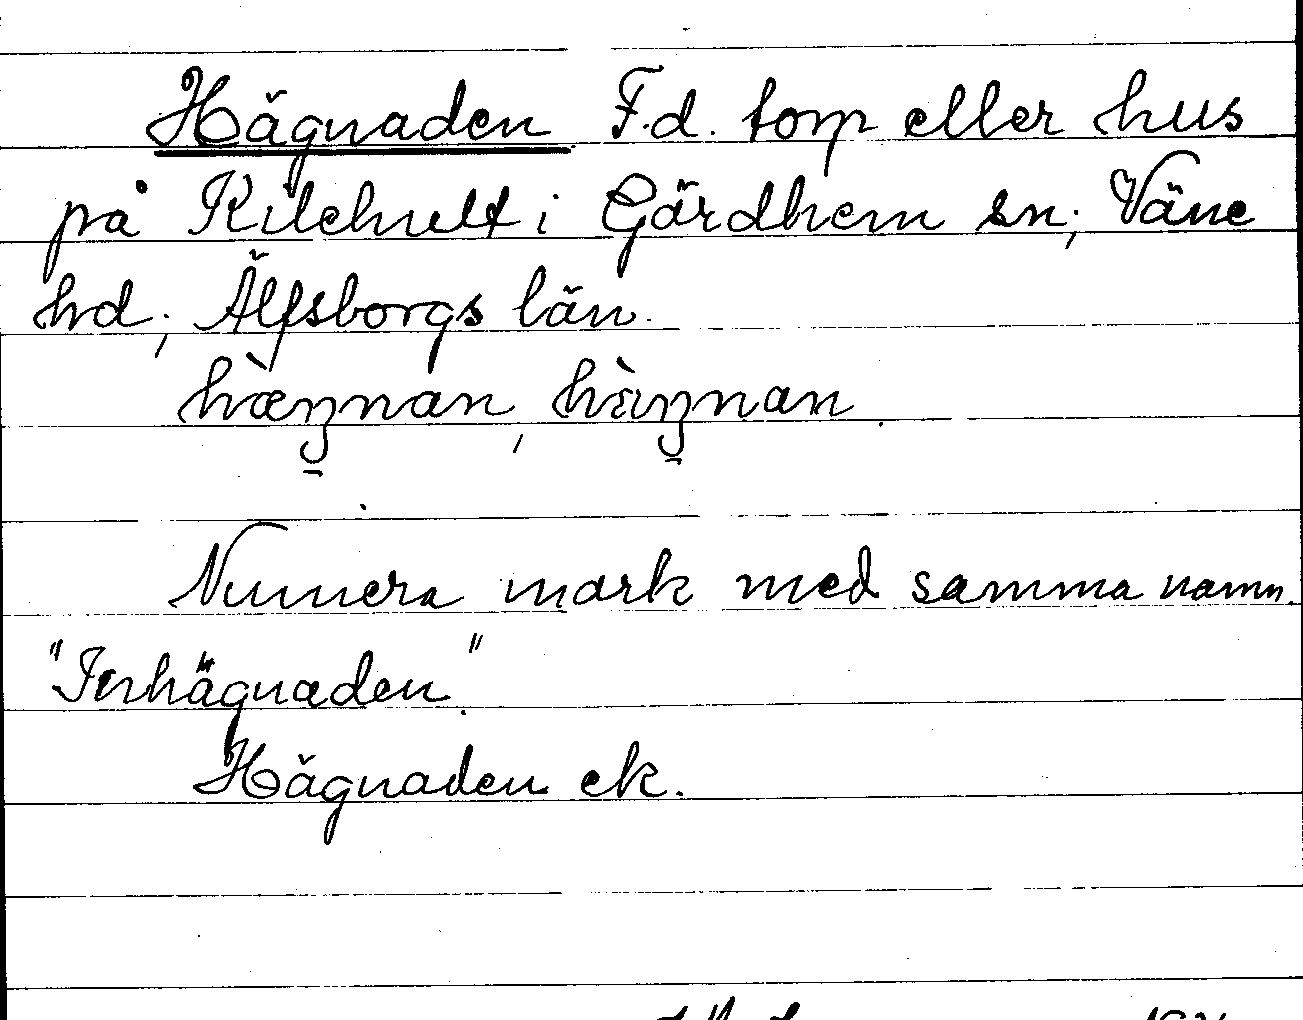 Hägnaden F.d. torp eller hus
på Kilehult i Gärdhem sn, Väne
hd, Älfsborgs län.
Numera mark med samma namn.
"Inhägnaden."
Hägnaden ek.